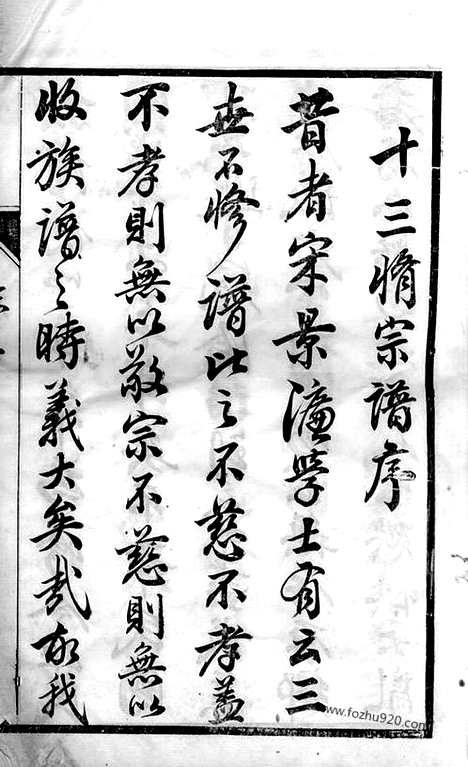 十三脩宗譜序
昔者宋景濂學士有云三
世不修譜比之不慈不孝蓋
不孝則無以敬宗不慈則無以
收族譜之時義大矣哉故我
www.fozhu920.com